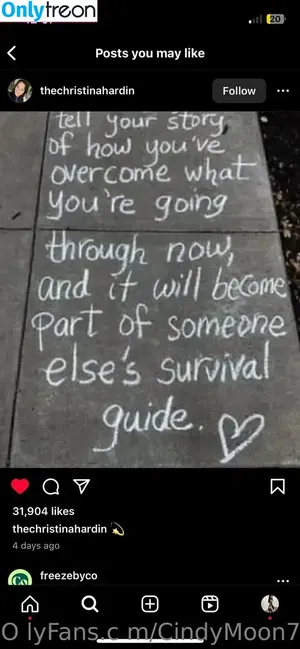 Onlytreon
20
Posts you may like
thechristinahardin
Follow
tell your story
of how you've
overcome what
you're going
through now,
and it will become
part of someone
else's survival
guide.
31,904 likes
thechristinahardin
4 days ago
freezebyco
O lyFans.c m/CindyMoon7